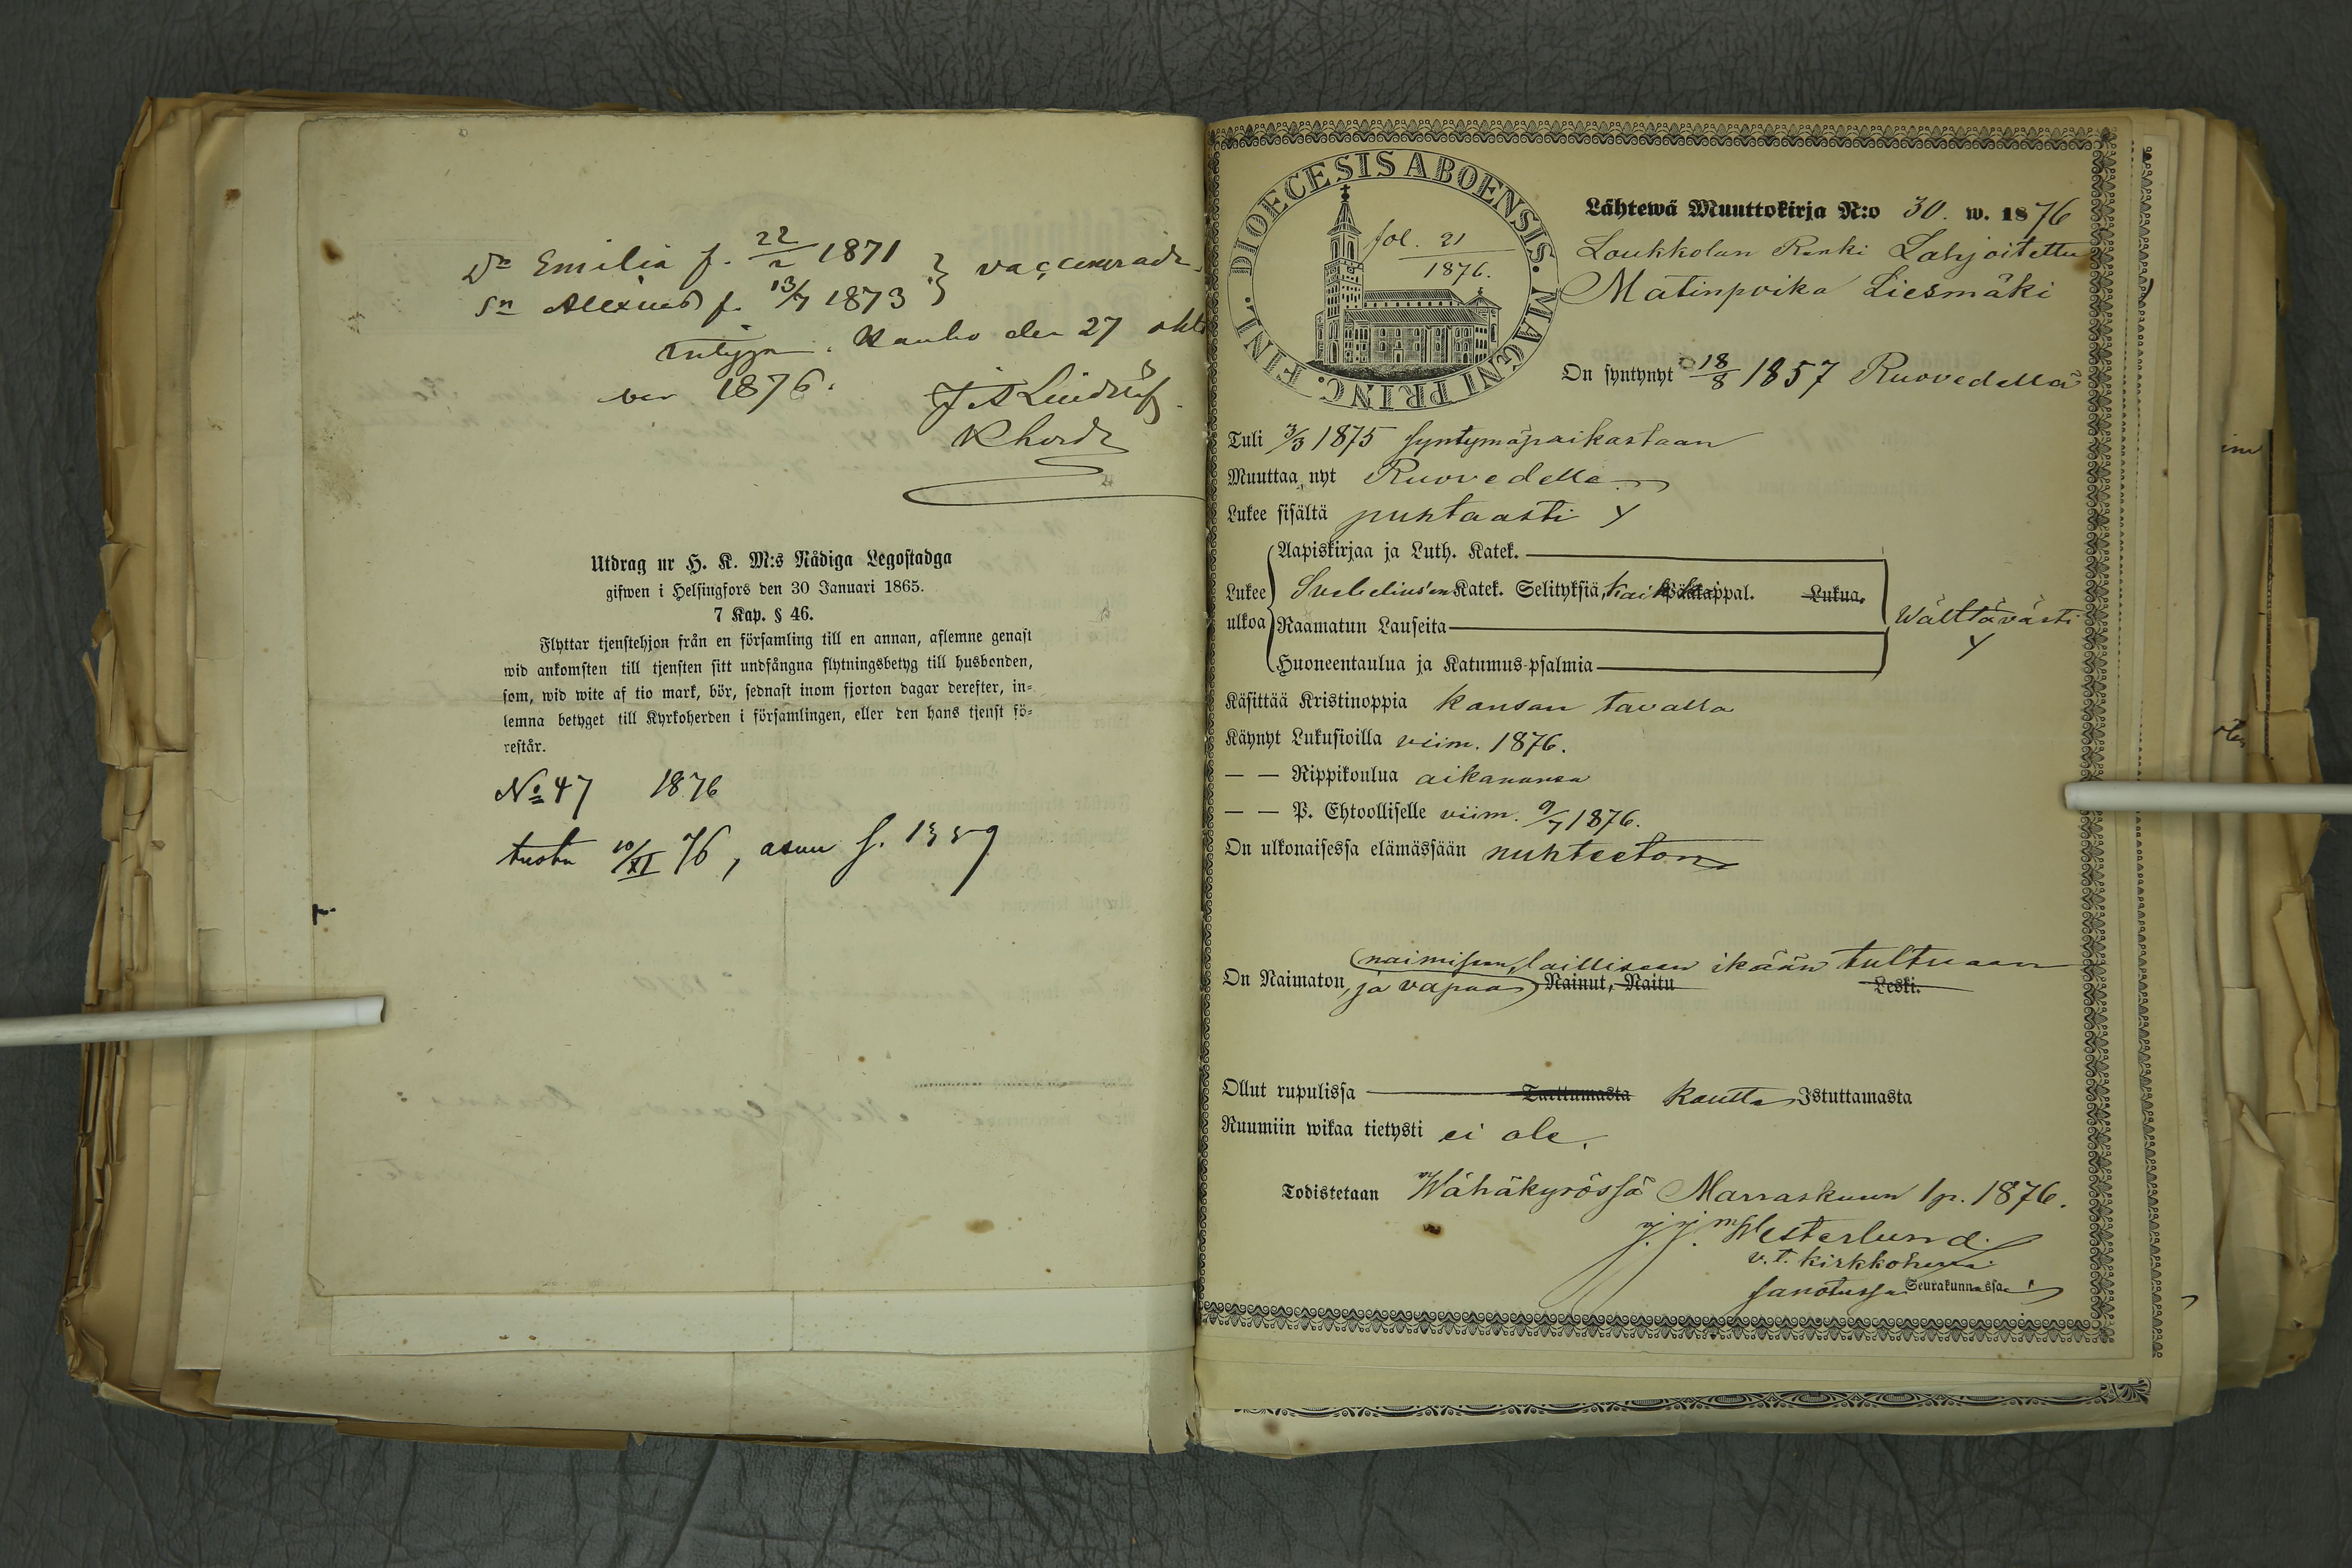 Dr Emilia f. 22/2 1871 } vaccinerade
Sn Alexius f. 13/7 1873
intygar. Kauho den 27 okto
ber 1876.
J A Lindröf
Kherde
Utdrag ur H. K. M:s Nådiga Legostadga
gifwen i Helsingfors den 30 Januari 1865.
7 Kap. § 46.
Flyttar tjenstehjon från en församling till en annan, aflemne genast
wid ankomsten till tjensten sitt undfångna flytningsbetyg till husbonden,
som, wid wite af tio mark, bör, sednast inom fjorton dagar derefter, in-
lemna betyget till Kyrkoherden i församlingen, eller den hans tjenst fö-
restår.
No 47 1876
tuotu 10/XI 76, asuu s. 1359
DIOECESIS ABOENSIS. MAGNI PRINC. FINL.
fol. 21
1876.
Lähtewä Muuttokirja N:o 30. w. 1876
Loukkolan Renki Lahjoitettu
Matinpoika Liesmäki
On syntynyt 18/8 1857 Ruovedellä
Tuli 3/3 1875 syntymäpaikastaan
Muuttaa nyt Ruovedelle
Lukee sisältä puhtaasti y
Lukee ulkoa
Aapiskirjaa ja Luth. Katek.
Svebelius'en Katek. Selityksiä, kaikki Päätappal. Lukua.
Raamatun Lauseita
Huoneentaulua ja Katumus-psalmia
Wälttävästi
y
Käsittää Kristinoppia kansan tavalla
Käynyt Lukusioilla viim. 1876.
— — Rippikoulua aikanansa
— — P. Ehtoolliselle viim. 9/7 1876.
On ulkonaisessa elämässään nuhteeton
naimiseen, lailliseen ikään tultuaan
On Naimaton, ja vapaa Nainut, Naitu Leski.
Ollut rupulissa Tarttumasta kautta Istuttamasta
Ruumiin wikaa tietysti ei ole.
Todistetaan Wähäkyrössä Marraskuun 1 p. 1876.
J. J. Westerlund
v. t. kirkkoherra
sanotussa Seurakunnassa